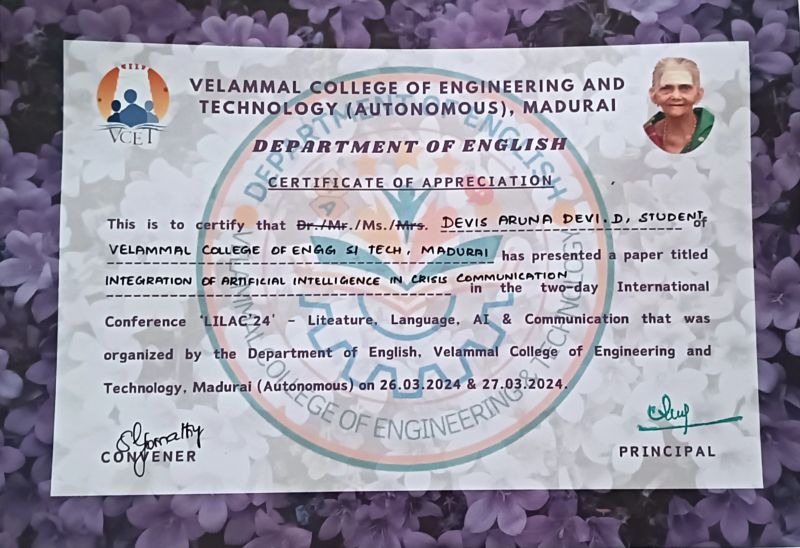 VCET
VELAMMAL COLLEGE OF ENGINEERING AND
TECHNOLOGY (AUTONOMOUS), MADURAI
DEPARTMENT OF ENGLISH
CERTIFICATE OF APPRECIATION
This is to certify that Dr./Mr./Ms./Mrs. DEVIS ARUNA DEVI.D, STUDENT of
VELAMMAL COLLEGE OF ENGG SI TECH, MADURAI has presented a paper titled
INTEGRATION OF ARTIFICIAL INTELLIGENCE IN CRISIS COMMUNICATION in the two-day International
Conference 'LILAC'24' - Liteature, Language, AI & Communication that was
organized by the Department of English, Velammal College of Engineering and
Technology, Madurai (Autonomous) on 26.03.2024 & 27.03.2024.
CONVENER
PRINCIPAL
DEPARTMENT OF ENGLISH
VELAMMAL COLLEGE OF ENGINEERING & TECHNOLOGY